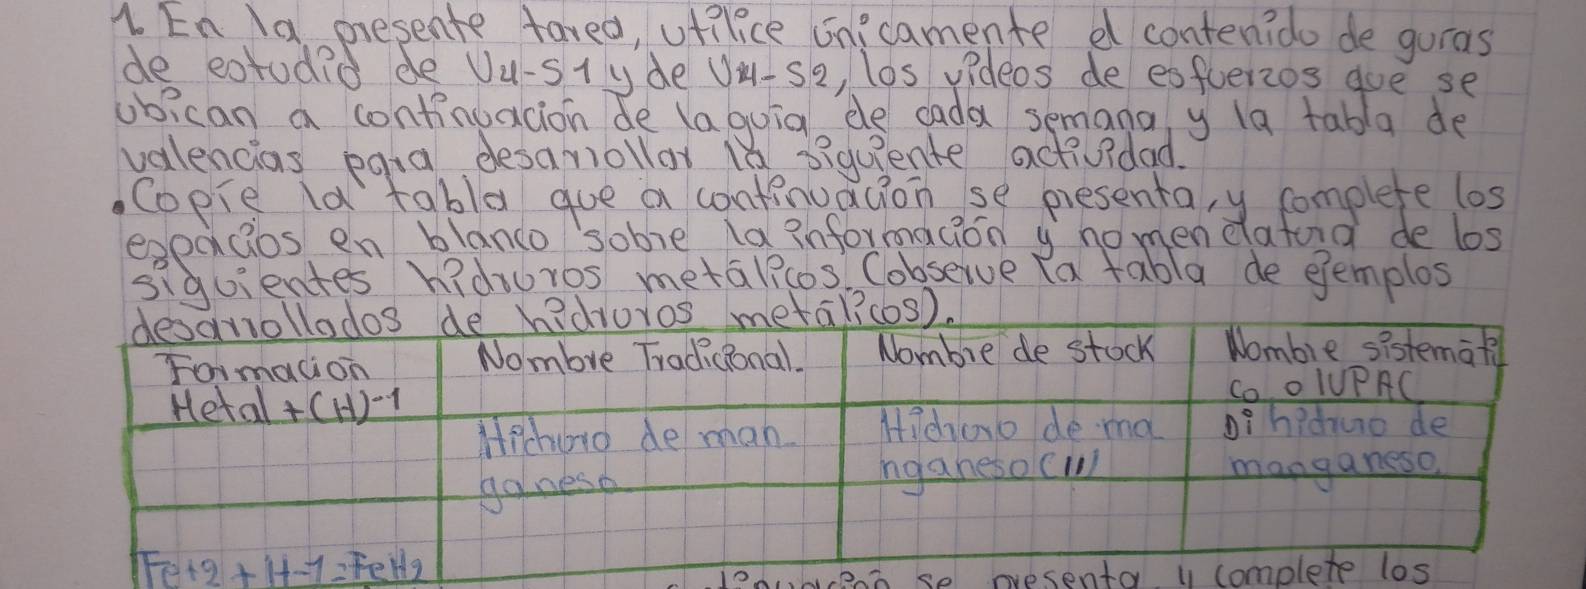 1. En la presente tarea, utilice únicamente el contenido de guías
de estudio de U4-S1 y de U4-S2, los videos de esfuerzos que se
ubican a continuación de la guía de cada semana y la tabla de
valencias para desarrollar la siguiente actividad.
• Copie la tabla que a continuación se presenta, y complete los
espacios en blanco sobre la información y nomenclatura de los
siguientes hidruros metálicos. (observe la tabla de ejemplos
desarrollados de hidruros metálicos).
Formación Nombre Tradicional. Nombre de stock Nombre sistemáti
Metal + (H)-1 co o IUPAC
Hidruro de man Hidruro de ma Di hidruro de
ganeso nganeso (II) manganeso.
Fe+2 + H-1 = FeH2
se presenta y complete los